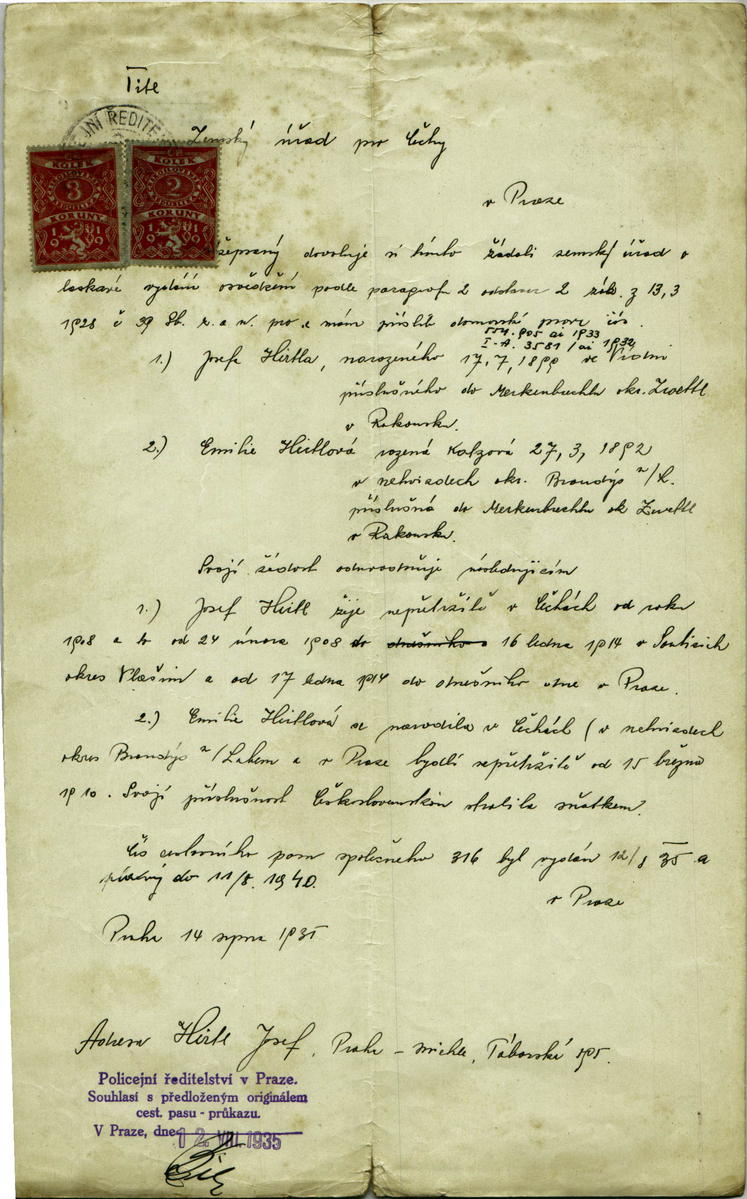 Titl
JNÍ ŘEDITE
Zemský úřad pro Čechy
KOLEK
3
KORUNY
KOLEK
2
KORUNY
v Praze
dovoluje si tímto žádati zemský úřad o
laskavé vydání osvědčení podle paragrafu 2 odstavec 2 zák. z 13,3
1928 č 39 Sb. z. a n. pro
příslib domovské
1933
I-A. 3581/ai 1934
1.) Josefa Hirtla, narozeného 17,7,1890 ve
příslušného do Merkenbrechtu okr. Zwettl
v Rakousku.
2.) Emilie Hirtlová rozená 27,3,1892
v nehvizdech okr. Brandýs n/L.
příslušná do Merkenbrechtu ok Zwettl
v Rakousku.
Svojí žádost odůvodňuje následujícím
1.) Josef Hirtl žije nepřetržitě v Čechách od roku
1908 a to od 24 února 1908 do 16 ledna 1914 v
okres Vlašim a od 17 ledna 1914 do dnešního dne v Praze.
2.) Emilie Hirtlová se narodila v Čechách (v nehvizdech
okres Brandýs n/Labem a v Praze bydlí nepřetržitě od 15 března
1910. Svojí příslušnost Československou ztratila sňatkem.
Čís cestovního pasu společného 316 byl vydán 12/8 35 a
do 11/8. 1940.
v Praze
Praha 14 srpna 1935
Adresa Hirtl Josef, Praha - michle, Táborská
Policejní ředitelství v Praze.
Souhlasí s předloženým originálem
cest. pasu - průkazu.
V Praze, dne 12. VIII. 1935